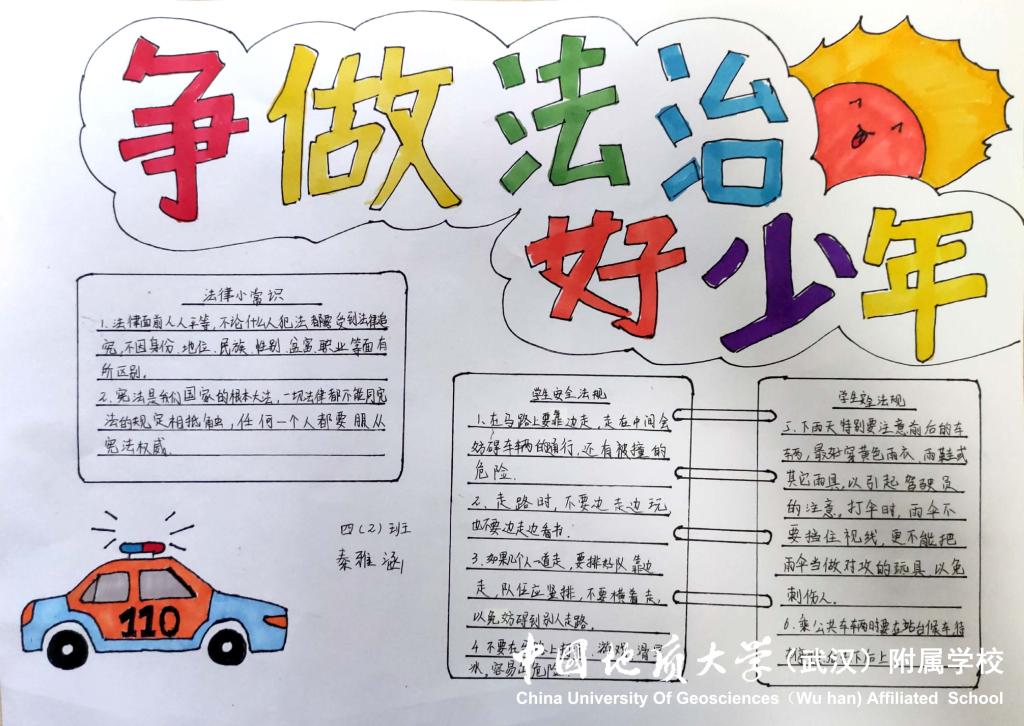 争做法治
好少年
法律小常识
1.法律面前人人平等,不论什么人犯法都要受到法律追
究,不因身份.地位.民族.性别.贫富.职业等面有
所区别.
2.宪法是我们国家的根本大法,一切法律都不能同宪
法的规定相抵触,任何一个人都要服从
宪法权威.
四(2)班
秦雅涵
110
学生安全法规
1.在马路上要靠边走,走在中间会
妨碍车辆的通行,还有被撞的
危险.
2.走路时,不要边走边玩
也不要边走边看书.
3.如果几个人一道走,要排好队靠边
走,队伍应竖排,不要横着走,
以免妨碍到别人走路.
4.不要在 上 游戏.滑
冰,容易出危险.
学生安全法规
5.下雨天特别要注意前后的车
车辆,最好穿黄色雨衣.雨鞋或
其它雨具,以引起驾驶员
的注意,打伞时,雨伞不
要挡住视线,更不能把
雨伞当做对攻的玩具,以免
刺伤人.
6.乘公共车辆时要在站台候车,待
中国地质大学(武汉)附属学校
China University Of Geosciences（Wu han) Affiliated School